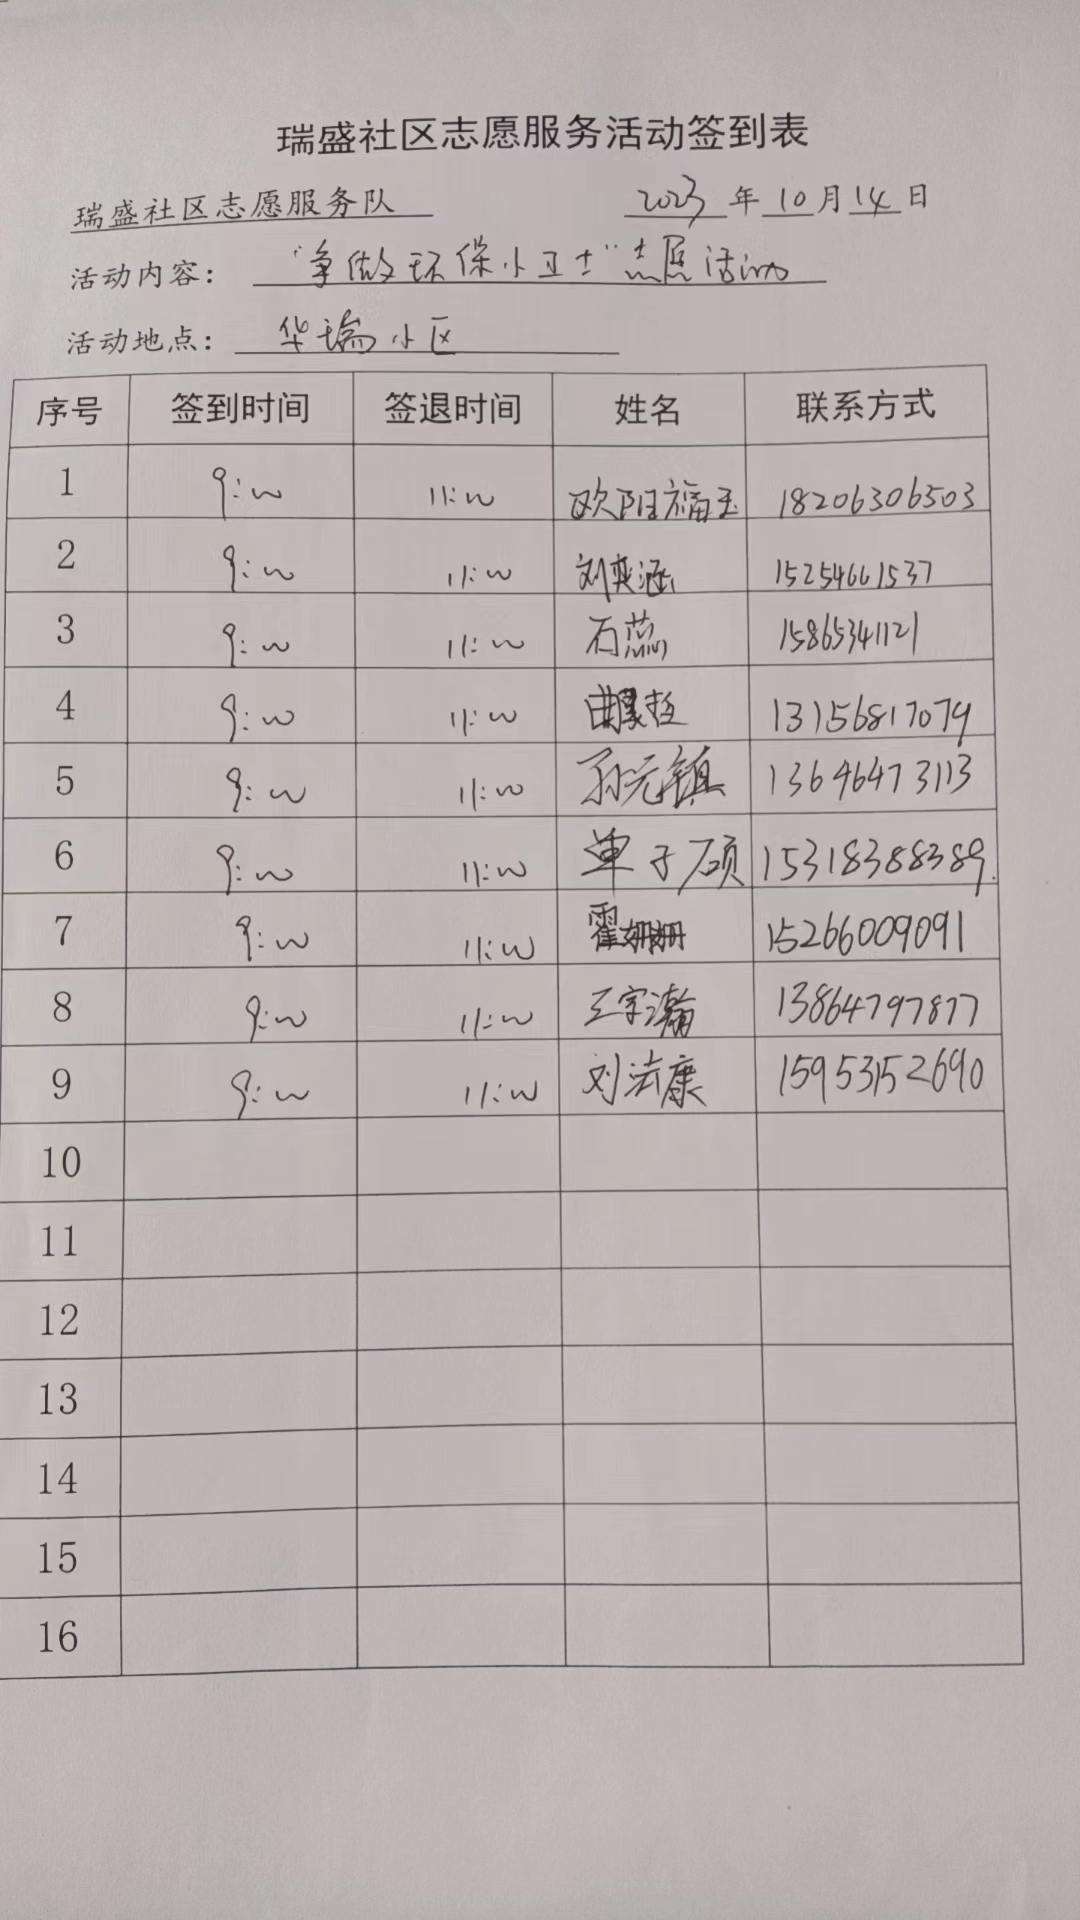 瑞盛社区志愿服务活动签到表
瑞盛社区志愿服务队 2023 年 10 月 14 日
活动内容： “争做环保小卫士”志愿活动
活动地点： 华瑞小区
序号 签到时间 签退时间 姓名 联系方式
1 9:00 11:00 欧阳福玉 18206306503
2 9:00 11:00 刘爽涵 15254661537
3 9:00 11:00 石蕊 15865341121
4 9:00 11:00 13156817079
5 9:00 11:00 孙元镇 13646473113
6 9:00 11:00 单子硕 15318388389
7 9:00 11:00 霍姗姗 15266009091
8 9:00 11:00 王宇瀚 13864797877
9 9:00 11:00 刘法康 15953152690
10
11
12
13
14
15
16